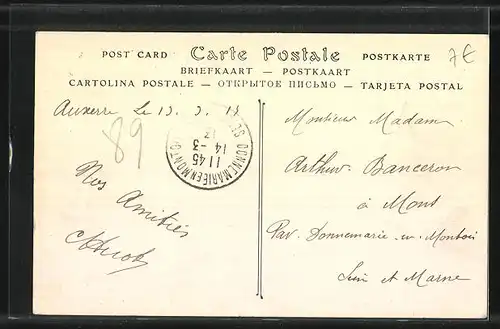 POST CARD Carte Postale POSTKARTE
BRIEFKAART — POSTKAART
CARTOLINA POSTALE — ОТКРЫТОЕ ПИСЬМО — TARJETA POSTAL
7€
Auxerre Le 13 3 14
89
DONNEMARIE EN MONTOIS
11 45
14 - 3
Nos Amitiés
Monsieur Madame
Arthur Banceron
à Mons
Par Donnemarie en Montois
Seine et Marne